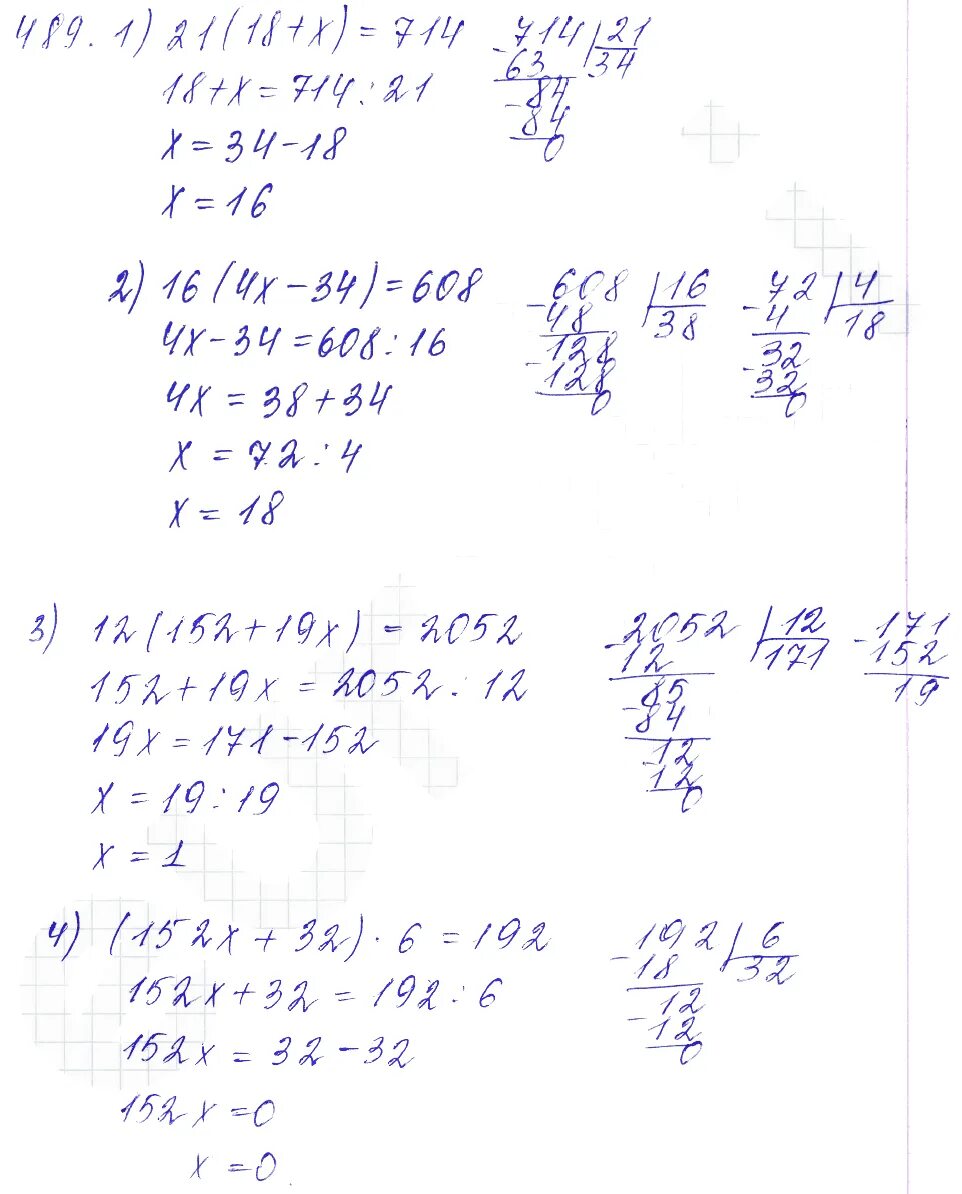 489. 1) 21(18+x) = 714
18+x = 714 : 21
x = 34 - 18
x = 16
-714 | 21
63 34
-84
84
0
2) 16(4x - 34) = 608
4x - 34 = 608 : 16
4x = 38 + 34
x = 72 : 4
x = 18
-608 | 16
48 38
-128
128
0
-72 | 4
4 18
-32
32
0
3) 12(152 + 19x) = 2052
152 + 19x = 2052 : 12
19x = 171 - 152
x = 19 : 19
x = 1
-2052 | 12
12 171
-85
84
-12
12
0
-171
152
19
4) (152x + 32) · 6 = 192
152x + 32 = 192 : 6
152x = 32 - 32
152x = 0
x = 0
-192 | 6
18 32
-12
12
0